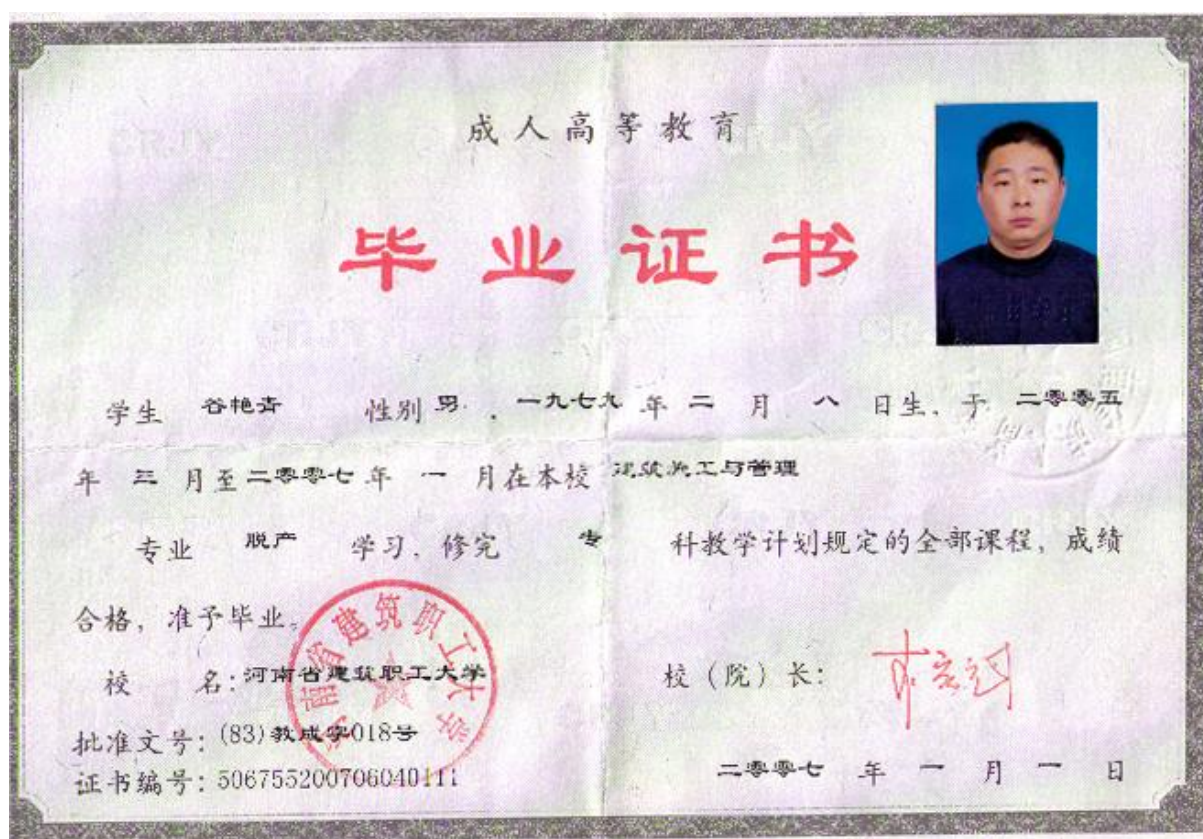 成人高等教育
毕业证书
学生 谷艳青 性别 男 ,一九七九 年 二 月 八 日生, 于 二零零五
年 三 月至 二零零七 年 一 月在本校 建筑施工与管理
专业 脱产 学习, 修完 专 科教学计划规定的全部课程, 成绩
合格, 准予毕业。
校 名: 河南省建筑职工大学
校(院)长:
批准文号: (83)教成字018号
证书编号: 506755200706040111
二零零七 年 一 月 一 日
河南省建筑职工大学